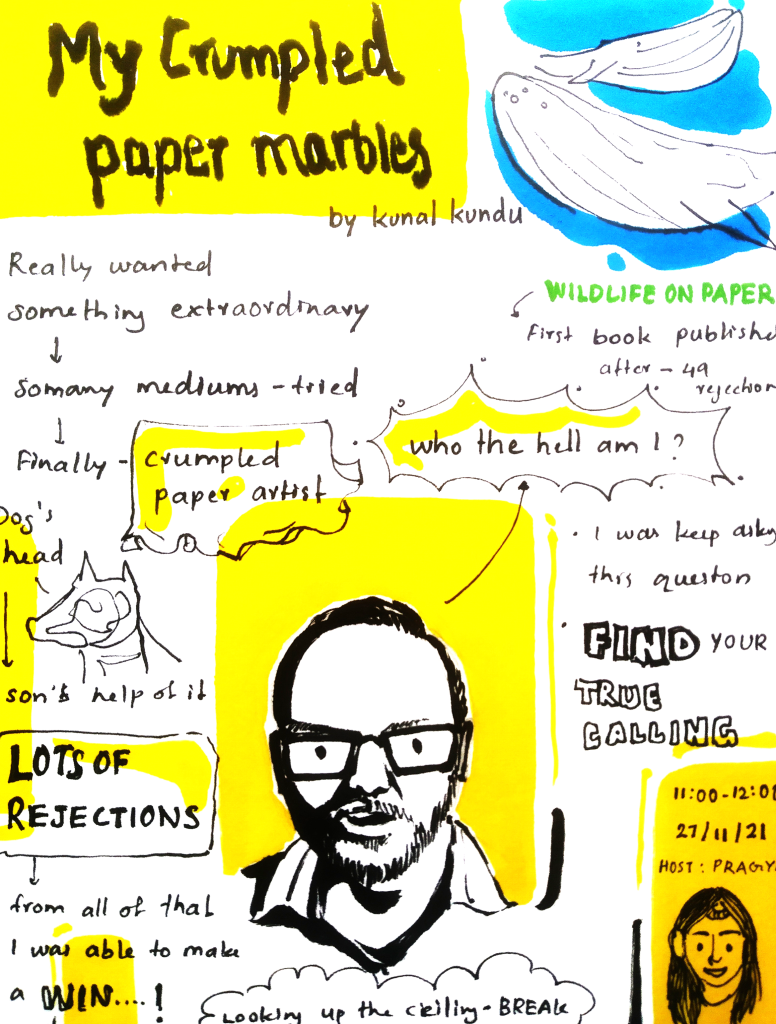 My Crumpled
paper marbles
by kunal kundu
Really wanted
something extraordinary
somany mediums - tried
Finally -
crumpled
paper artist
Dog's
head
son's help of it
LOTS OF
REJECTIONS
from all of that
I was able to make
a WIN....!
WILDLIFE ON PAPER
First book publishe
after - 49
rejection
who the hell am I ?
I was keep asky
this queston
FIND YOUR
TRUE
CALLING
11:00-12:00
27/11/21
HOST : PRAGYA
Looking up the ceiling - BREAK